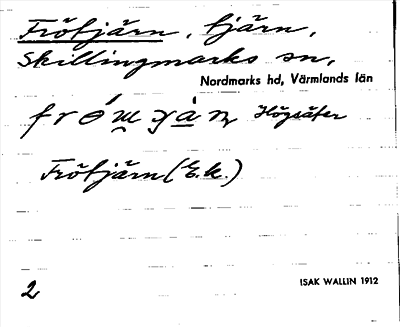 Frötjärn, tjärn,
Skillingmarks sn,
Nordmarks hd, Värmlands län
Högsäter
Frötjärn (E.k.)
2
ISAK WALLIN 1912